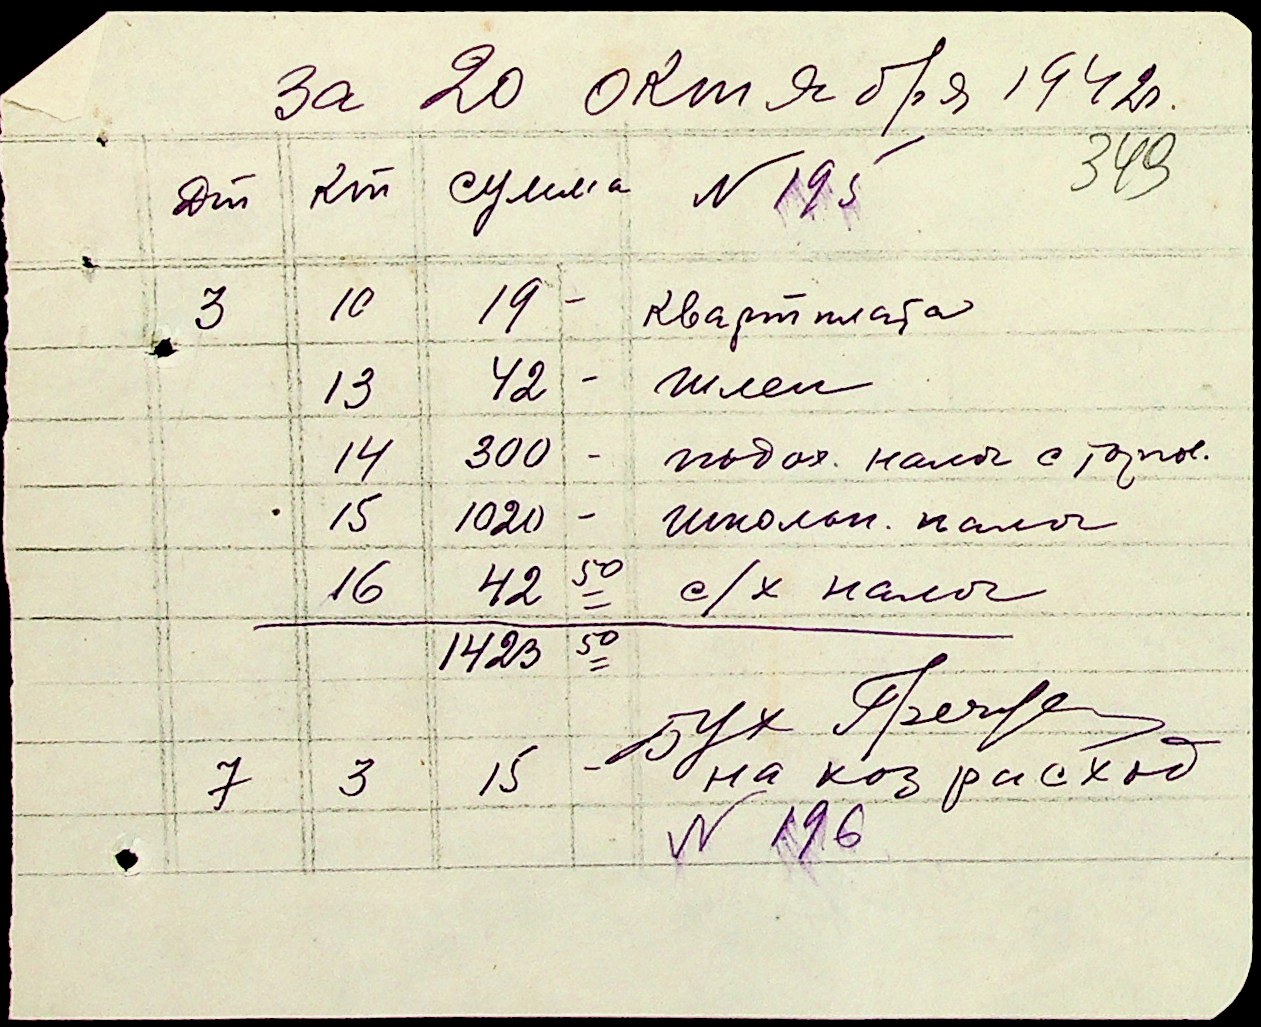 за 20 октября 1942г.
349
Дт Кт сумма N 195
3 10 19 - квартплата
13 42 -
14 300 - подох. налог с
15 1020 - школьн. налог
16 42 50 с/х налог
1423 50
Бух
7 3 15 - на хоз расход
N 196